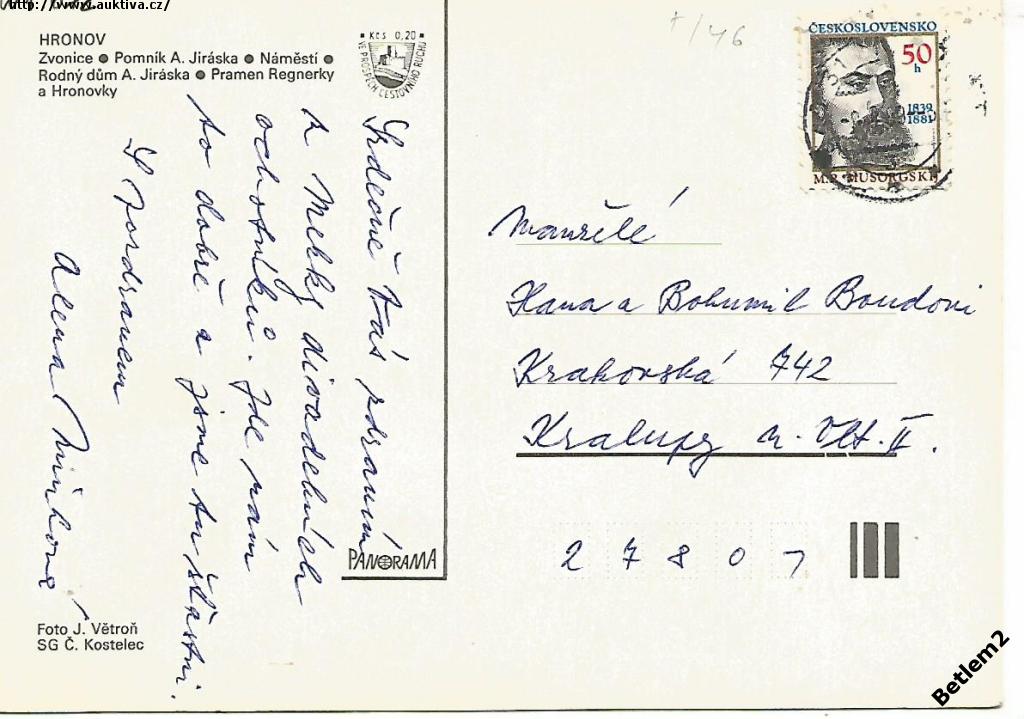 http://www.auktiva.cz/
HRONOV
Zvonice ● Pomník A. Jiráska ● Náměstí ●
Rodný dům A. Jiráska ● Pramen Regnerky
a Hronovky
Kčs 0,20
VE PROSPĚCH CESTOVNÍHO RUCHU
+/46
ČESKOSLOVENSKO
50
h
1839
1881
M.P. MUSORGSKIJ
Srdečně Vás zdravím
z Mekky divadelních
ochotníků. Jde nám
to dobře a jsme tu šťastni.
S pozdravem
Alena
Manželé
Hana a Bohumil Boudovi
Krakovská 742
Kralupy n. Vlt. II.
27801
PANORAMA
Foto J. Větroň
SG Č. Kostelec
Betlem2